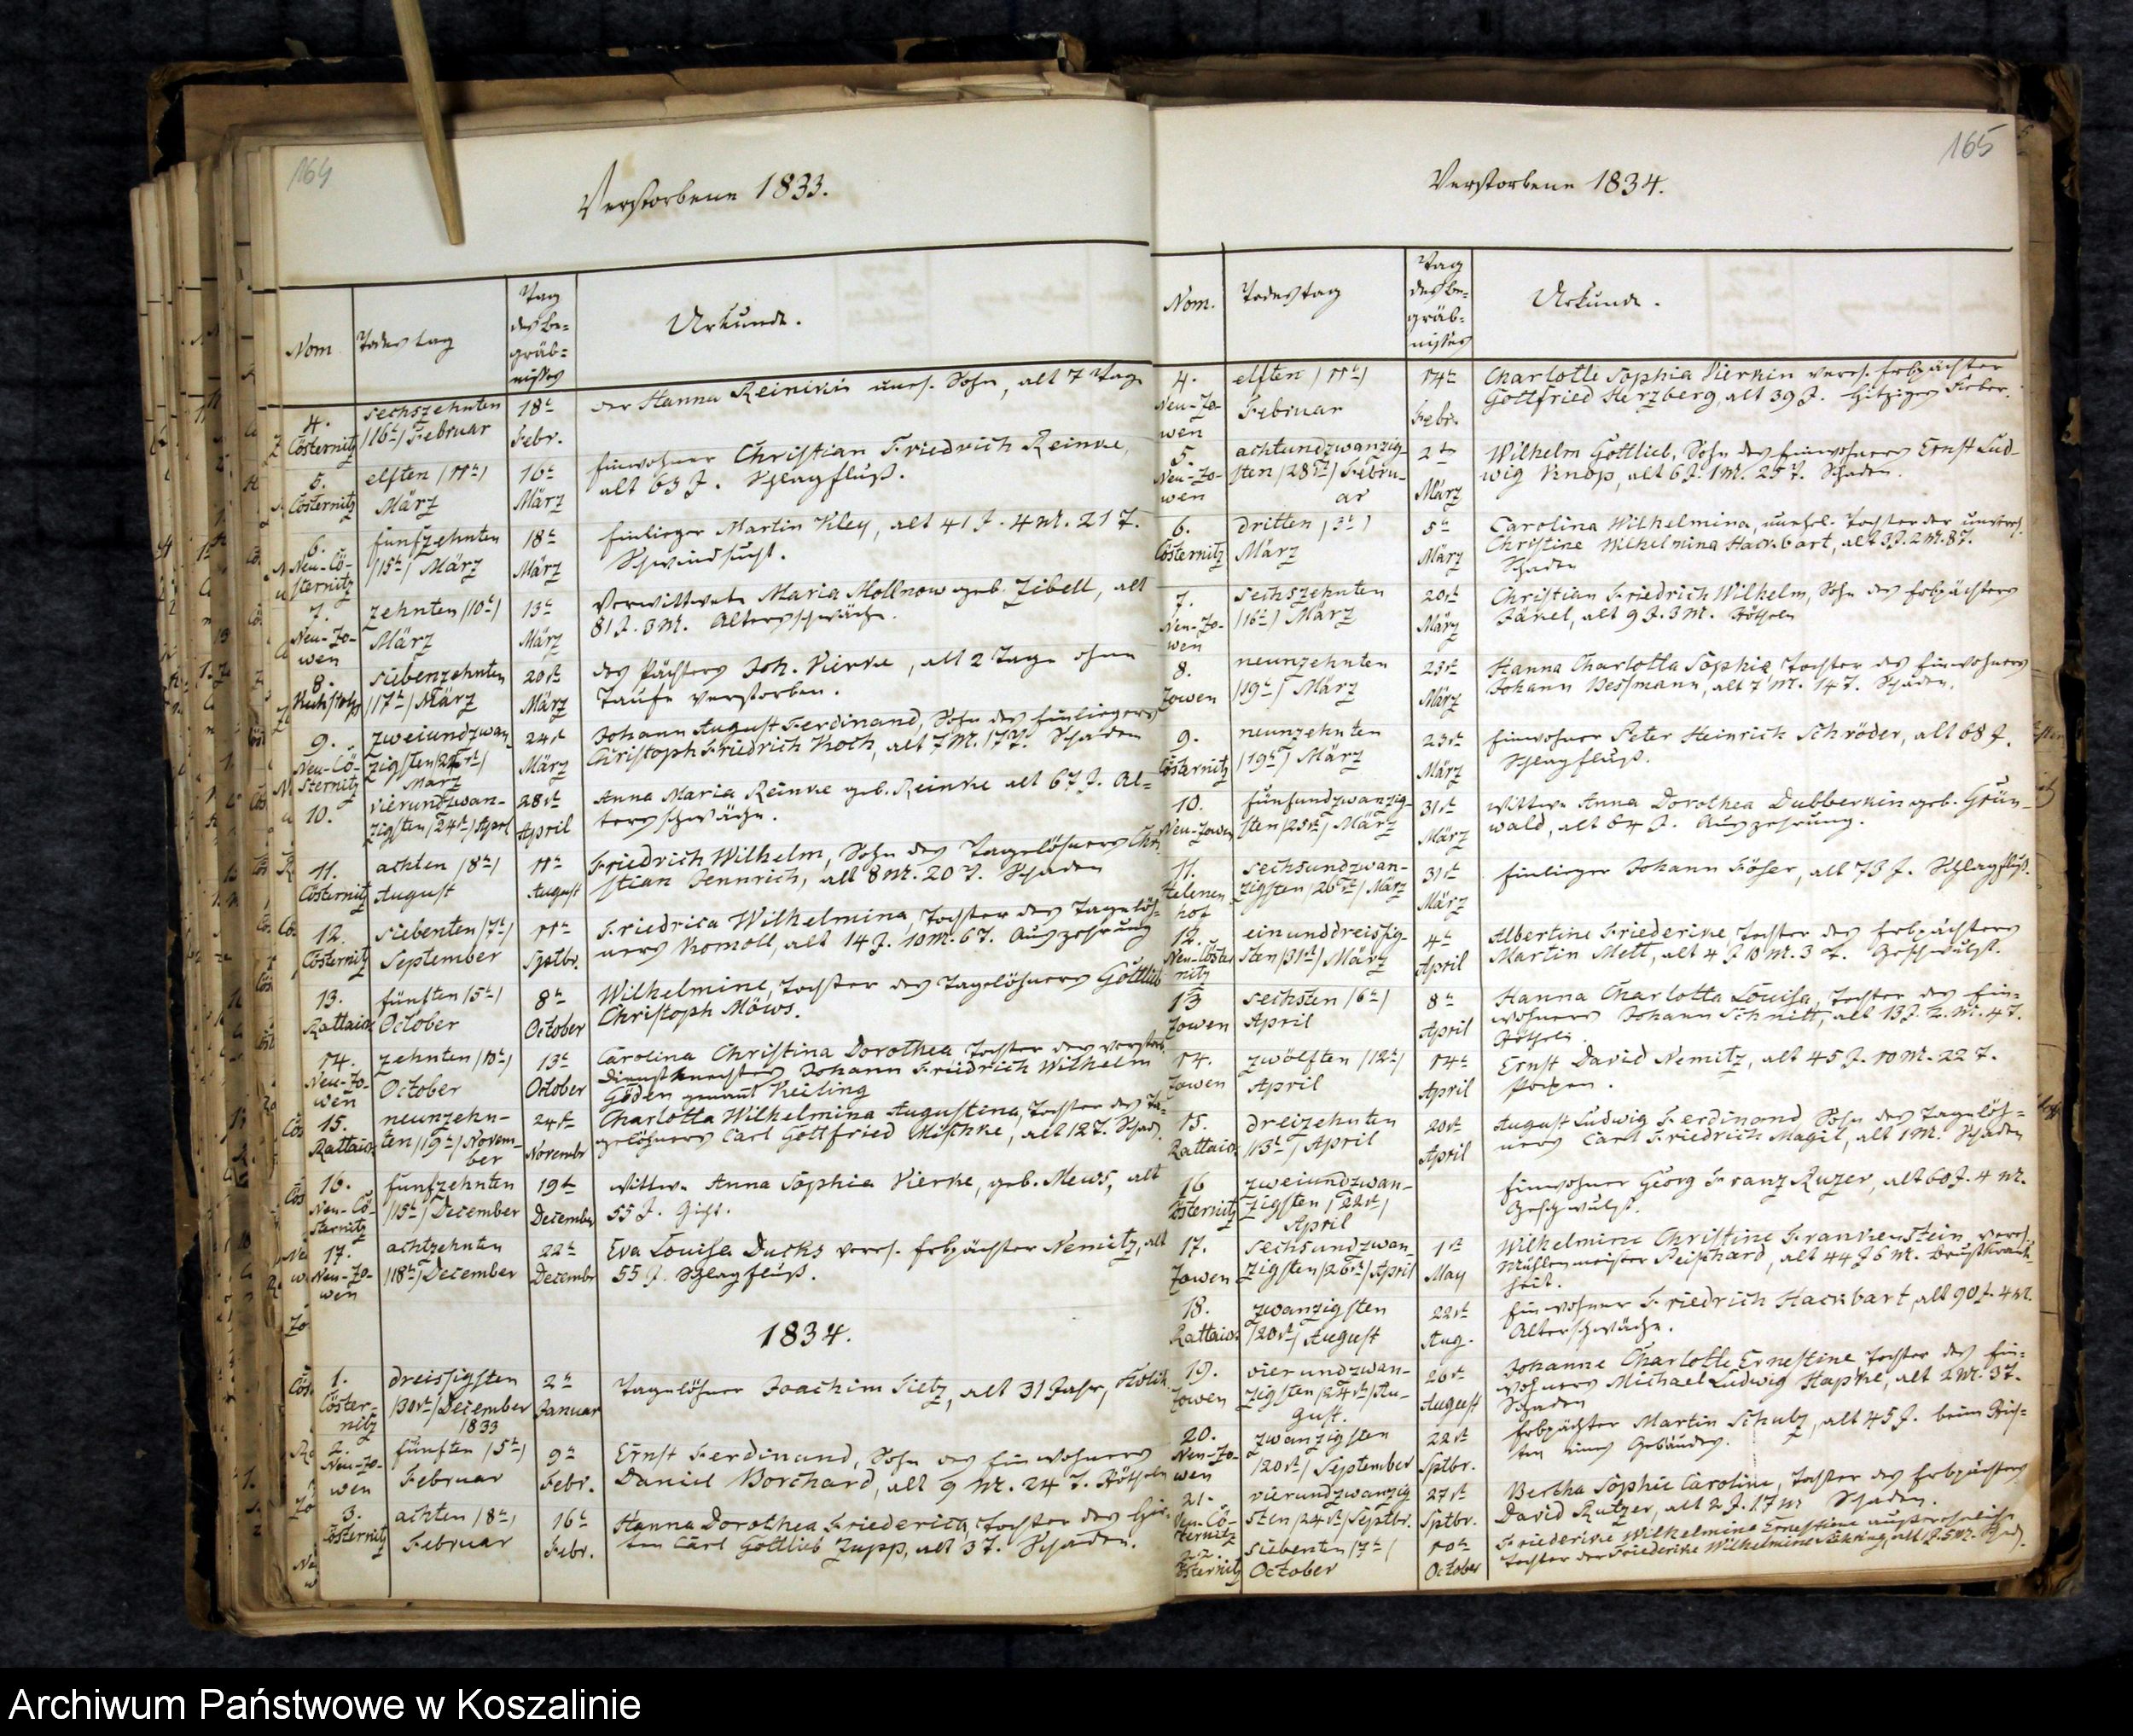 164
Verstorbene 1833.
Nom.
Todestag
Tag
des Be-
gräb-
nisses
Urkunde.
4.
Cösternitz
sechszehnten
/16t/ Februar
18t
Febr.
der Hanna Reinikin unehl. Sohn, alt 7 Tage
5.
Cösternitz
elften /11t/
März
16t
März
Einwohner Christian Friedrich Reinke,
alt 63 J. Schlagfluß.
6.
Neu-Cö-
sternitz
funfzehnten
/15t/ März
18t
März
Einlieger Martin Kley, alt 41 J. 4 M. 21 T.
Schwindsucht.
7.
Neu-Zo-
wen
zehnten /10t/
März
13t
März
Verwittwete Maria Mollnow geb. Zibell, alt
81 J. 3 M. Altersschwäche.
8.
siebenzehnten
/17t/ März
20st
März
des Pächters Joh. Vierke, alt 2 Tage ohne
Taufe verstorben.
9.
Neu-Cö-
sternitz
zweiundzwan-
zigsten
März
24st
März
Johann August Ferdinand, Sohn des Einliegers
Christoph Friedrich Koch, alt 7 M. 17 T. Schaden
10.
vierundzwan-
zigsten /24st/ April
28st
April
Anna Maria Reinke geb. Reinke alt 67 J. Al-
tersschwäche.
11.
Cösternitz
achten /8t/
August
11t
August
Friedrich Wilhelm, Sohn des Tagelöhners Chri-
stian Jennrich, alt 8 M. 20 T. Schaden
12.
Cösternitz
siebenten /7t/
September
11t
Sptbr.
Friedrica Wilhelmina, Tochter des Tagelöh-
ners Komoll, alt 14 J. 10 M. 6 T. Auszehrung
13.
Rattaick
fünften /5t/
October
8t
October
Wilhelmine, Tochter des Tagelöhners Gottlieb
Christoph Möws.
14.
Neu-Zo-
wen
zehnten /10t/
October
13t
October
Carolina Christina Dorothea Tochter des verstorb.
Dienstknechtes Johann Friedrich Wilhelm
Göden genannt Keiling
15.
Rattaick
neunzehn-
ten /19t/ Novem-
ber
24st
Novembr
Charlotta Wilhelmina Augustina, Tochter des Ta-
gelöhners Carl Gottfried Mischke, alt 12 T. Schad.
16.
Neu-Cö-
sternitz
funfzehnten
/15t/ December
19t
December
Wittwe Anna Sophia Vierke, geb. Mews, alt
55 J. Gicht.
17.
Neu-Zo-
wen
achtzehnten
/18t/ December
22st
Decembr
Eva Louisa Ducks verehl. Erbpächter Nemitz, alt
55 J. Schlagfluß.
1834.
1.
Cöster-
nitz
dreissigsten
/30st/ December
1833
2t
Januar
Tagelöhner Joachim Tietz, alt 31 Jahr, Kolik
2.
Neu-Zo-
wen
fünften /5t/
Februar
9t
Febr.
Ernst Ferdinand, Sohn des Einwohners
Daniel Borchard, alt 9 M. 24 T. Rötheln
3.
Cösternitz
achten /8t/
Februar
16t
Febr.
Hanna Dorothea Friederica, Tochter des Hir-
ten Carl Gottlieb Zupp, alt 3 T. Schaden.
165
Verstorbene 1834.
Nom.
Todestag
Tag
des Be-
gräb-
nisses
Urkunde.
4.
Neu-Zo-
wen
elften /11t/
Februar
14t
Febr.
Charlotte Sophia Vierkin verehl. Erbpächter
Gottfried Herzberg, alt 39 J. hitziges Fieber.
5.
Neu-Zo-
wen
achtundzwanzig-
sten /28st/ Febru-
ar
2t
März
Wilhelm Gottlieb, Sohn des Einwohners Ernst Lud-
wig Knop, alt 6 J. 1 M. 25 T. Schaden.
6.
Cösternitz
dritten /3t/
März
5t
März
Carolina Wilhelmina, unehel. Tochter der unverehl.
Christine Wilhelmina Hackbart, alt 3 J. 2 M. 8 T.
Schaden
7.
Neu-Zo-
wen
sechszehnten
/16t/ März
20st
März
Christian Friedrich Wilhelm, Sohn des Erbpächters
Jäkel, alt 9 J. 3 M. Rötheln
8.
Zowen
neunzehnten
/19t/ März
23st
März
Hanna Charlotta Sophia, Tochter des Einwohners
Johann Bessmann, alt 7 M. 14 T. Schaden.
9.
Cösternitz
neunzehnten
/19t/ März
23st
März
Einwohner Peter Heinrich Schröder, alt 68 J.
Schlagfluß.
10.
Neu-Zowen
fünfundzwanzig-
sten /25st/ März
31st
März
Wittwe Anna Dorothea Dubberkin geb. Grün-
wald, alt 64 J. Auszehrung.
11.
Helenen
hof
sechsundzwan-
zigsten /26st/ März
31st
März
Einlieger Johann Föser, alt 73 J. Schlagfluß.
12.
Neu-Cöster
nitz
einunddreissig-
sten /31st/ März
4t
April
Albertine Friederike, Tochter des Erbpächters
Martin Mett, alt 4 J. 10 M. 3 T. Geschwulst.
13
Zowen
sechsten /6t/
April
8t
April
Hanna Charlotta Louisa, Tochter des Ein-
wohners Johann Schmitt, alt 13 J. 2 M. 4 T.
Rötheln.
14.
Zowen
zwölften /12t/
April
14t
April
Ernst David Nemitz, alt 45 J. 10 M. 22 T.
Pocken.
15.
Rattaick
dreizehnten
/13t/ April
20st
April
August Ludwig Ferdinand, Sohn des Tagelöh-
ners Carl Friedrich Magil, alt 1 M. Schaden
16
Cösternitz
zweiundzwan-
zigsten /22st/
April
Einwohner Georg Franz Ruzer, alt 60 J. 4 M.
Geschwulst.
17.
Zowen
sechsundzwan-
zigsten /26st/ April
1st
May
Wilhelmine Christine Frankenstein verehl.
Mühlenmeister Peischard, alt 44 J 6 M. Brustkrank-
heit.
18.
Rattaick
zwanzigsten
/20st/ August
22st
Aug.
Einwohner Friedrich Hackbart, alt 90 J. 4 M.
Altersschwäche.
19.
Zowen
vierundzwan-
zigsten /24st/ Au-
gust.
26st
August
Johanne Charlotte Ernestine Tochter des Ein-
wohners Michael Ludwig Hapke, alt 2 M. 3 T.
Schaden
20.
Neu-Zo-
wen
zwanzigsten
/20st/ September
22st
Sptbr.
Erbpächter Martin Schulz, alt 45 J. beim Rich-
ten eines Gebäudes.
21.
Neu-Cö-
sternitz
vierundzwanzig
sten /24st/ Septbr.
27st
Sptbr.
Bertha Sophie Caroline, Tochter des Erbpächters
David Rutzer, alt 2 J. 17 M Schaden.
22.
Cösternitz
siebenten /7t/
October
10t
October
Friederike Wilhelmine Ernestine außereheliche
Tochter der Friederike Wilhelmine
Archiwum Państwowe w Koszalinie